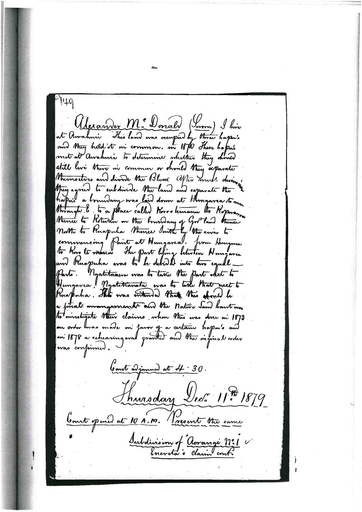 149
Alexander McDonald (Sworn) I live
at Awahuri. This land was occupied by three hapu's
and they held it in common. in 1870 these hapu's
met at Awahuri to determine whether they should
still live there in common or should they separate
themselves and divide their Block. After much
they agreed to subdivide the land and separate the
hapu's a boundary was laid down at Hungarea
through to a place called
thence to on the boundary of Govt land thence
North to Ruapuha thence South by the river to
commencing point at Hungarea. from Hungarea
to the part lying between Hungarea
and Ruapuha was to be divided into two equal
parts. was to take the part next to
Hungarea. was to take that next to
Ruapuha. This was intended that this should be
a final arrangement and the Native Land Court was
to investigate their claims, when this was done in 1873
an order was made in favor of a certain hapu's and
in 1878 a rehearing was granted and this original order
was confirmed.
Court adjourned at 4.30.
Thursday Decr. 11th 1879
Court opened at 10 A.M. Present the same
Subdivision of Aorangi No. 1
claim cont.